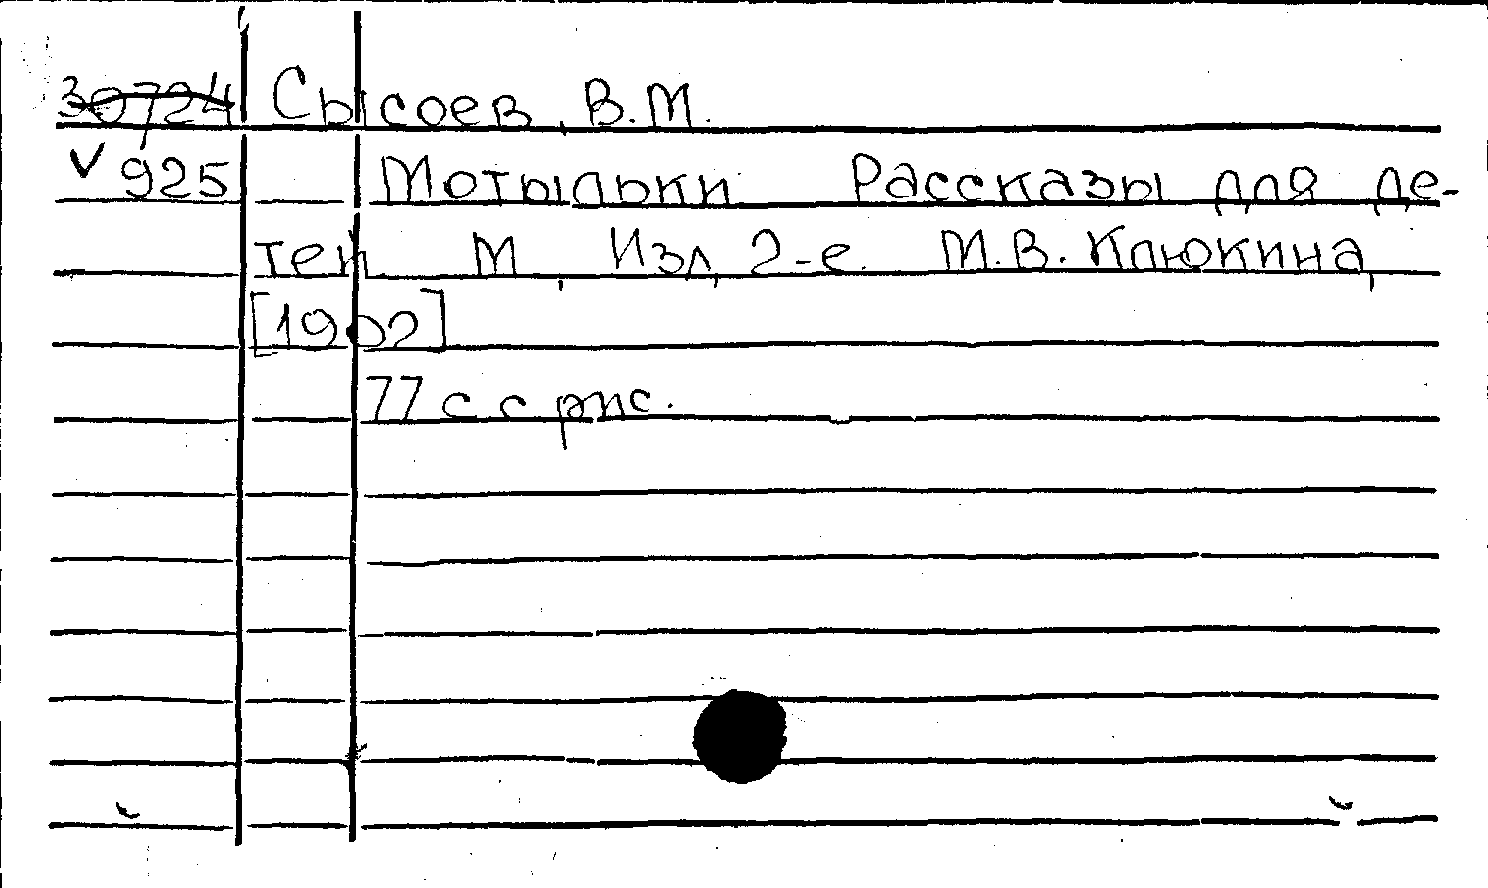 30724 Сысоев, В.М.
V 925 Мотыльки Рассказы для де-
тей М, Изд, 2-е. М.В. Клюкина,
[1902]
77 с с рис.